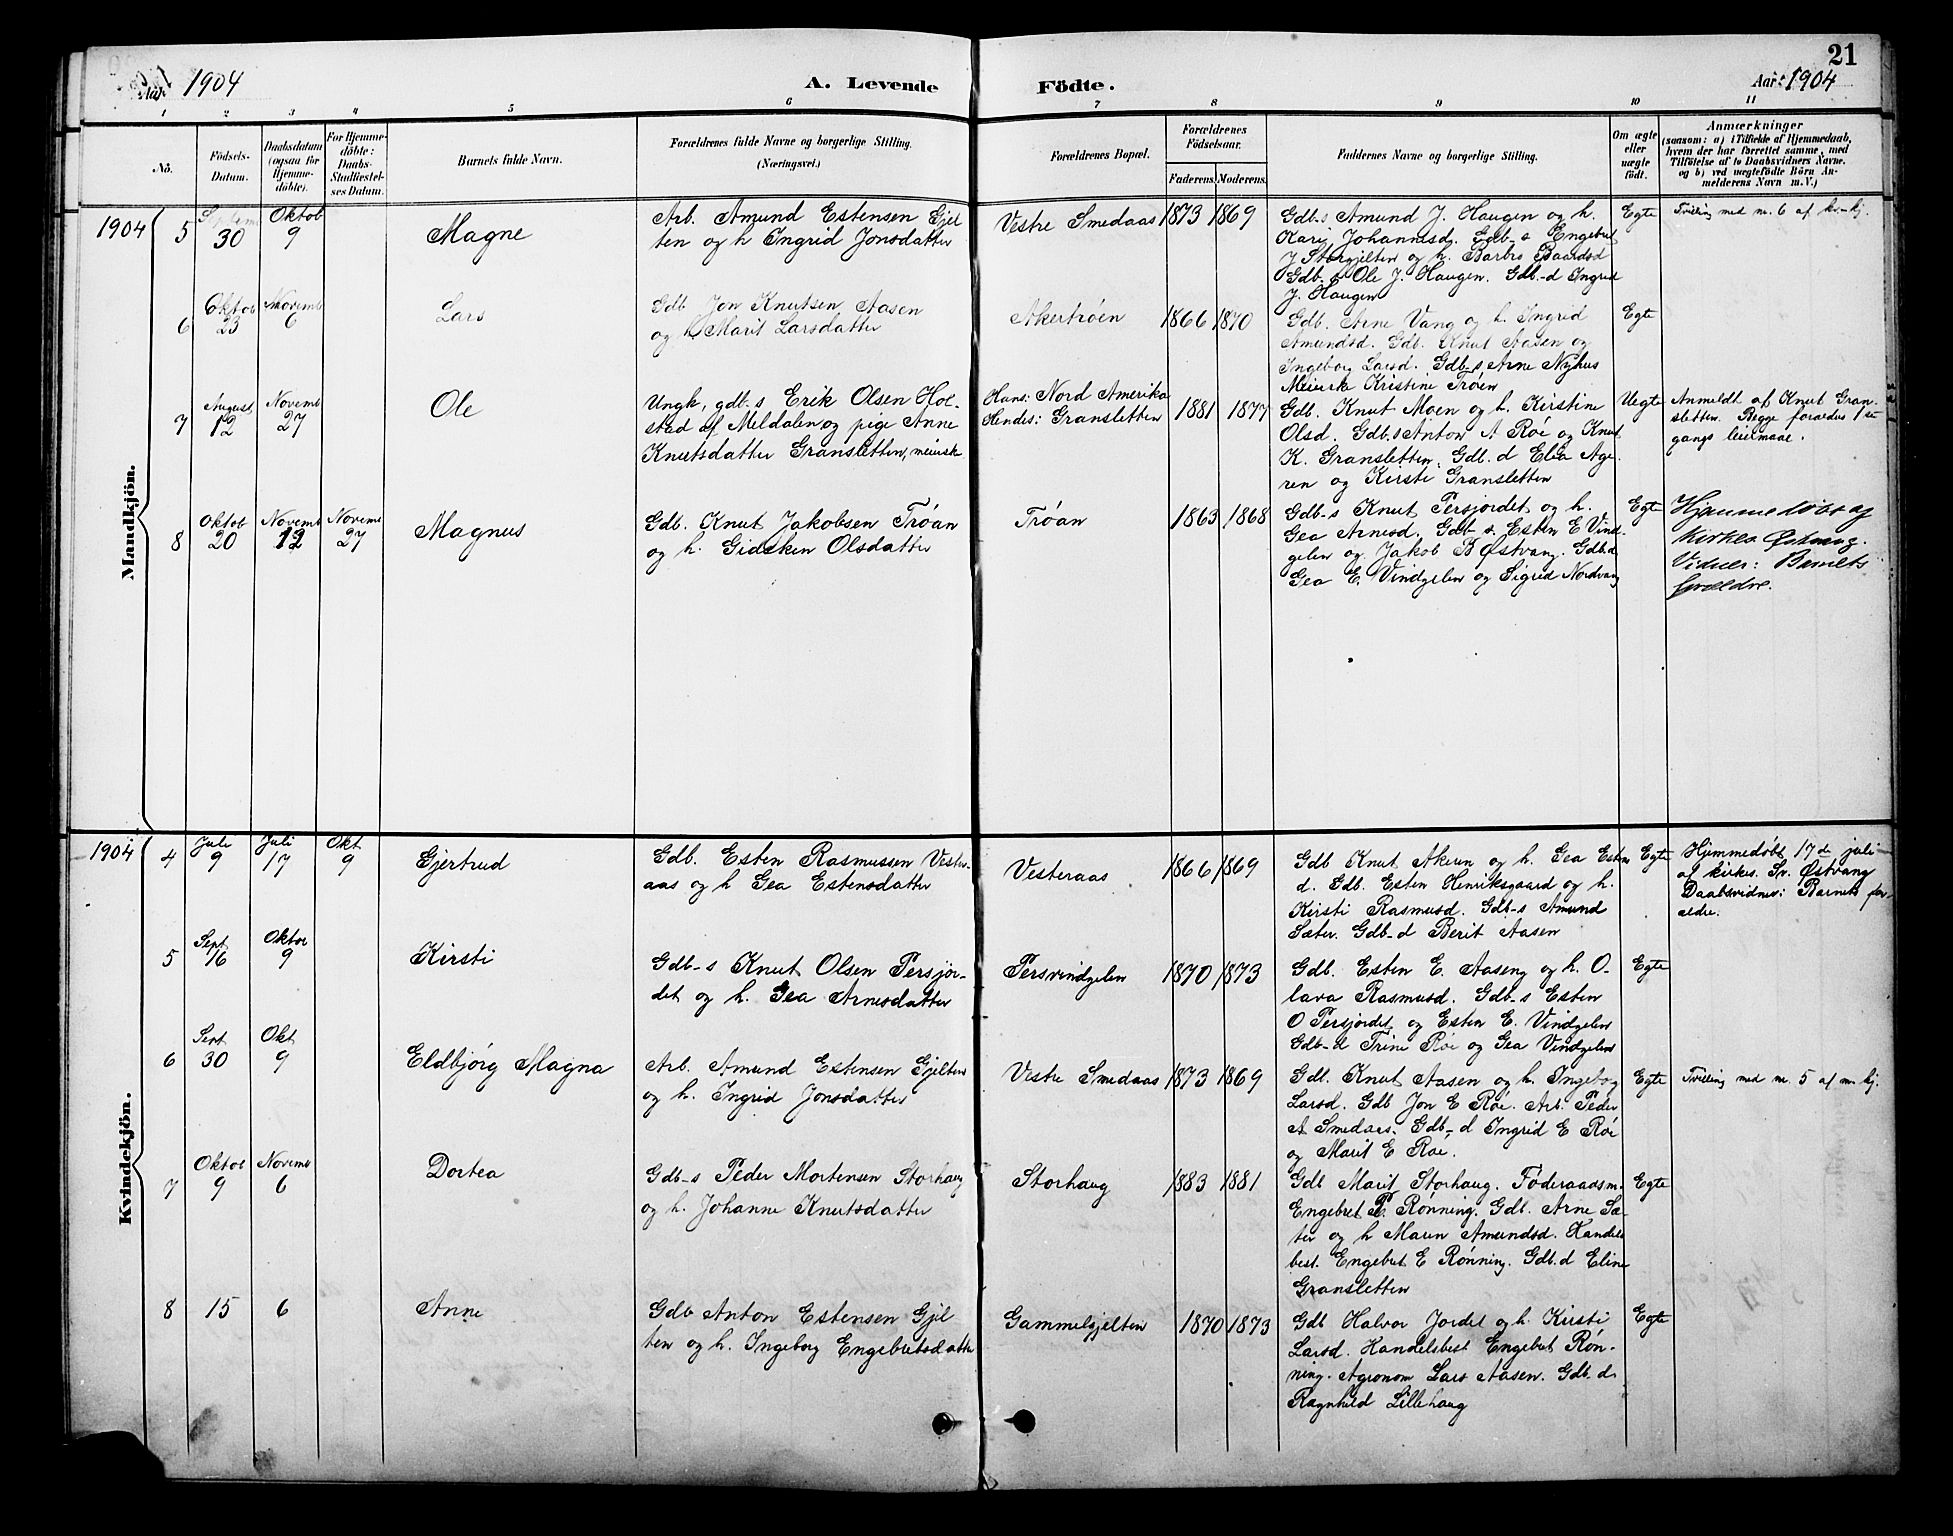 21
Aar 1904
A. Levende Födte.
Aar 1904
1 2 3 4 5 6 7 8 9 10 11
No.
Födsels-
Datum.
Daabsdatum
(ogsaa for
Hjemme-
döbte).
For Hjemme-
döbte:
Daabs-
Stadfæstel-
ses Datum.
Barnets fulde Navn.
Forældrenes fulde Navne og borgerlige Stilling.
(Næringsvei.)
Forældrenes Bopæl.
Forældrenes
Födselsaar.
Faderens. Moderens.
Faddernes Navne og borgerlige Stilling.
Om ægte
eller
uægte
födt.
Anmærkninger
(saasom: a) i Tilfælde af Hjemmedaab,
hvem der har forrettet samme, med
Tilföielse af to Daabsvidners Navne.
og b) ved uægtefödte Börn An-
melderens Navn m. V.)
Mandkjön.
1904
5
30
Oktob
9
Magne
Arb. Amund Estensen Gjel
ten og h Ingrid Jonsdatter
Vestre Smedaas
1873 1869
Gdb-s Amund J. Haugen og h.
Kari Johannesd. Gdb-s Engebret
J Storgjelten og h. Barbro Baardsd
Gdb-s Ole J. Haugen. Gdb-d Ingrid
J. Haugen
Egte
Tvilling med nr. 6 af kv-kj.
6
Oktob
23
Novemb
6
Lars
Gdb Jon Knutsen Aasen
og h. Marit Larsdatter
Akertrøen
1866 1870
Gdb. Arne Vang og h. Ingrid
Amundsd. Gdb. Knut Aasen og
Ingeborg Larsd. Gdb-s Arne Nyhus
Meierske Kristine Trøen
Egte
7
August
12
Novemb
27
Ole
Ungk, gdb-s Erik Olsen Hol-
stad af Meldalen og pige Anne
Knutsdatter Gransletten, meiersk
Hans: Nord Amerika
Hendes: Gransletten
1881 1877
Gdb. Knut Moen og h. Kirstine
Olsd. Gdb.s Anton A Røe og Knut
K. Gransletten. Gdb.d Elia Age-
ren og Kirsti Gransletten
Uegte
Anmeldt af Knut Gran-
sletten. Begge forældes 1ste
gangs leiermaal.
8
Oktob
20
Novemb
12
Novemb
27
Magnus
Gdb. Knut Jakobsen Trøan
og h. Gidsken Olsdatter
Trøan
1863 1868
Gdb-s Knut Persjordet og h.
Gea Arnesd. Gdb-s. Esten E Vind-
gelen og Jakob B Østvang. Gdb.d
Gea E. Vindgelen og Sigrid Nordvang
Egte
Hjemmedøbt af
Kirkes. Østvang.
Vidner: Barnets
forældre.
Kvindekjön.
1904
4
Juli
9
Juli
17
Okt
9
Gjertrud
Gdb. Esten Rasmussen Vester-
aas og h Gea Estensdatter
Vesteraas
1866 1869
Gdb Knut Akeren og h. Gea Esten
d. Gdb. Esten Henriksgaard og h.
Kirsti Rasmusd. Gdb-s Amund
Sæter. Gdb-d Berit Aasen
Egte
Hjemmedøbt 17de juli
af kirkes. Sv. Østvang
Daabsvidner: Barnets for-
ældre.
5
Sept
16
Oktob
9
Kirsti
Gdb-s Knut Olsen Persjor-
det og h. Gea Arnesdatter
Persvindgelen
1870 1873
Gdb. Esten E. Aaseng og h. O-
lava Rasmusd. Gdb-s Esten
O Persjordet og Esten E. Vindgelen
Gdb-d Trine Røe og Gea Vindgelen
Egte
6
Sept
30
Okt
9
Eldbjørg Magna
Arb. Amund Estensen Gjelten
og h. Ingrid Jonsdatter
Vestre Smedaas
1873 1869
Gdb. Knut Aasen og h. Ingebog
Larsd. Gdb Jon E Røe. Arb. Peder
A Smedaas. Gdb-d Ingrid E Røe
og Marit E Røe.
Egte
Tvilling med nr. 5 af m. kj.
7
Oktob
9
Novemb
6
Dortea
Gdb-s Peder Mortensen Storhaug
og h. Johanne Knutsdatter
Storhaug
1883 1881
Gdb Marit Storhaug. Føderaadsm.
Engebret P. Rønning. Gdb. Arne Sæ-
ter og h Maren Amundsd. Handels
best. Engebret E Rønning. Gdb.d Eline
Gransletten
Egte
8
15
6
Anne
Gdb Anton Estensen Gjel
ten og h. Ingeborg Engebretsdatter
Gammelgjelten
1870 1873
Gdb Halvor Jordet og h. Kirsti
Larsd. Handelsbest Engebret Røn-
ning. Agronom Lars Aasen. Gdb-d
Ragnhild Lillehaug
Egte